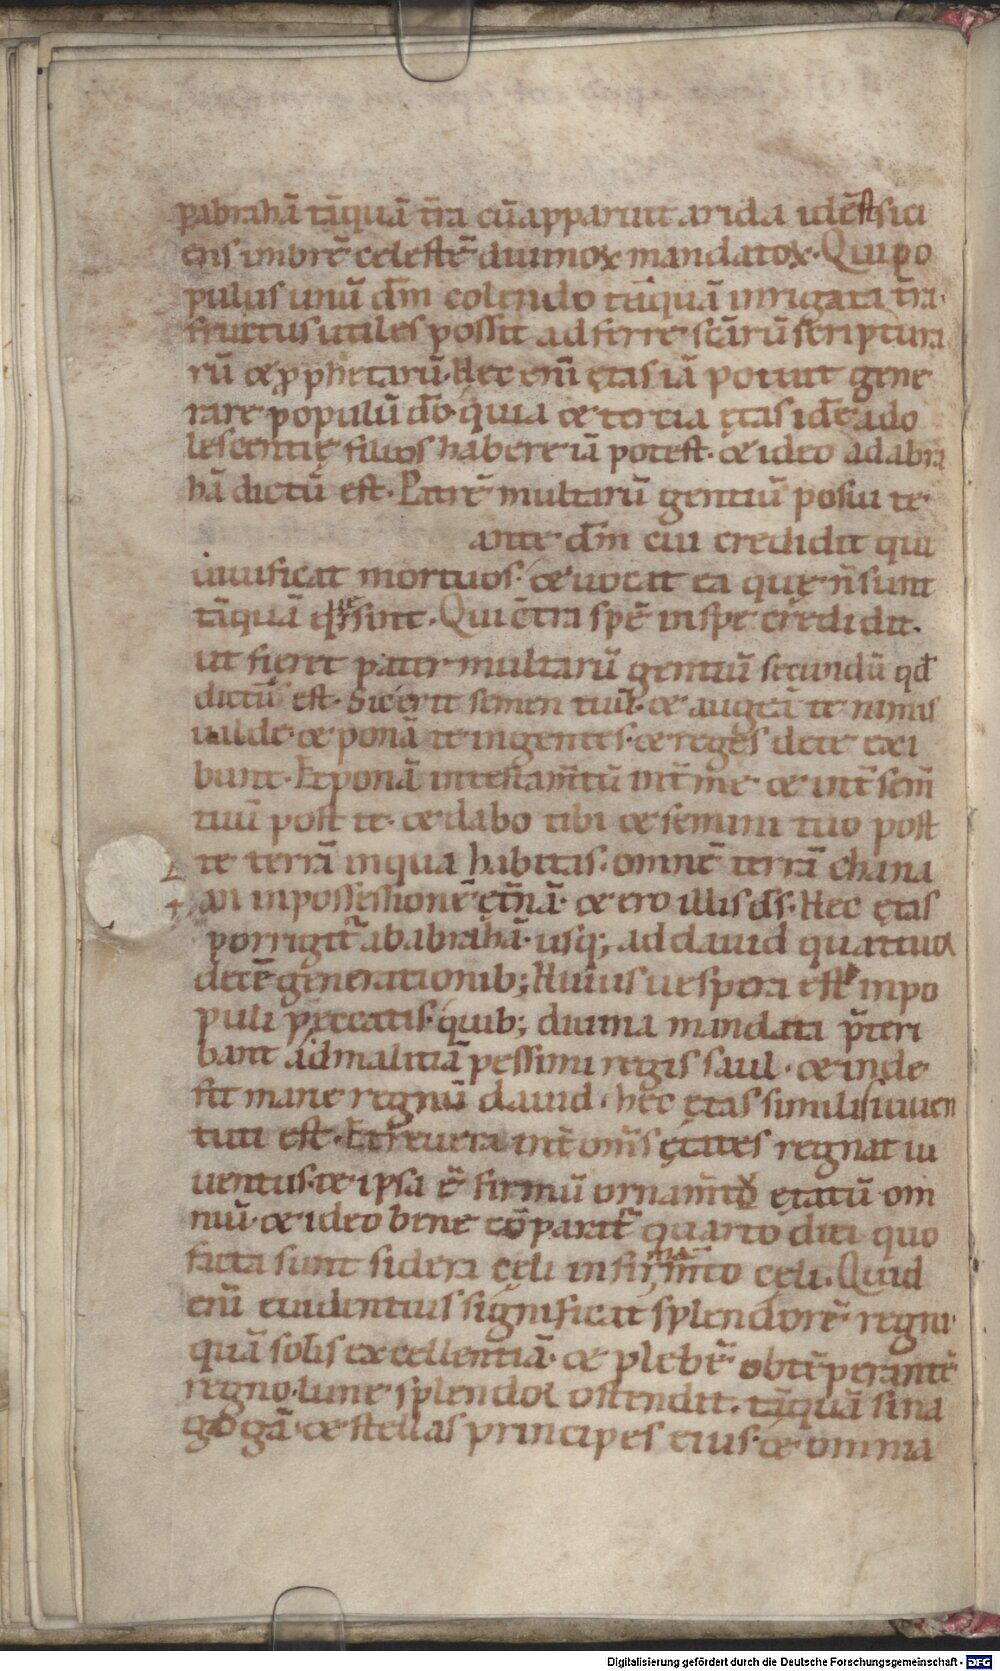 pabrahā tāquā tr̄a cūapparuit arida idēst sici
ens imbrē celestē diuinoꝝ mandatoꝝ. Qui po
pulus unū dm̄ colendo tāquā inrigata tr̄a.
fructus utiles possit adferre scārū scriptura
rū & ꝓphetarū. Hec eni ̄ętas iā potuit gene
rare populū dō. quia & tercia ętas id ē ado
lescentię filios habere iā potest. & ideo adabra
hā dictū est. Patrē multarū gentiū posui te.
ante dm̄ cui credidit qui
uiuificat mortuos. & uocat ea quę n̄ sunt
tāquā ea quę sunt. Qui cōtra spē inspe credidit.
ut fieret pater multarū gentiū secundū qd̄
dictū est. Sic erit semen tuū. & augeā te nimis
ualde. & ponā te ingentes. & reges dete exi
bunt. Et ponā intestam̄tū int̄ me & int̄ sem̄
tuū post te. & dabo tibi & semini tuo post
te terrā inqua habitas. omnē terrā chana
an inpossessionē ęt̄nā. & ero illis ds̄. Hec ętas
porrigit̄ ab abrahā. usq; ad dauid quattuor
decē generationib; Huius uespera est inpo
puli peccatis. quib; diuina mandata p̄teri
bant ad malitiā pessimi regis saul. & inde
fit mane regnū dauid. hec ętas similis iuuen
tuti est. Et reuera int̄ om̄s ętates regnat iu
uentus. & ipsa ē firmū ornam̄tū ętatū om
niū. & ideo bene cōparat̄ quarto diei quo
facta sunt sidera cęli infirmam̄to cęli. Quid
eni ̄euidentius significat splendorē regni
quā solis excellentiā. & plebē obtēperantē
regno. lune splendor ostendit. tāquā sina
gogā. & stellas principes eius. & omnia
Digitalisierung gefördert durch die Deutsche Forschungsgemeinschaft - DFG